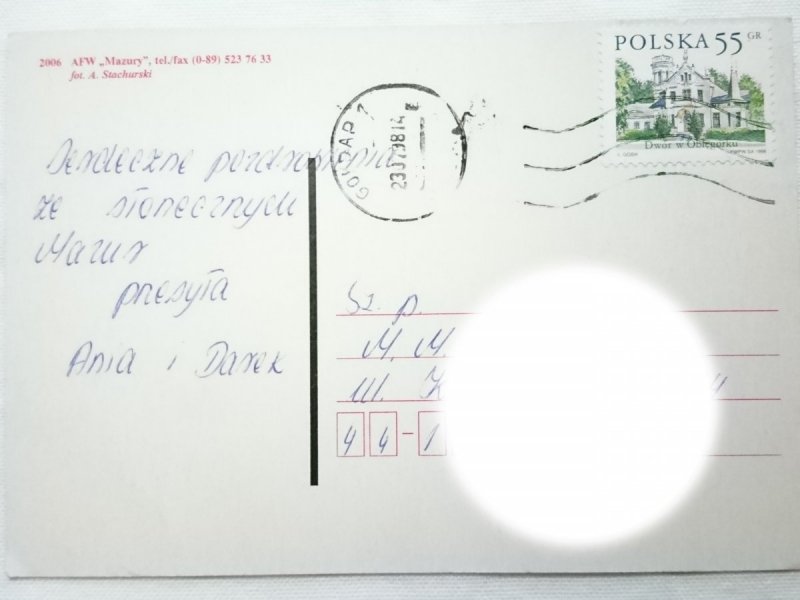 2006 AFW „Mazury”, tel./fax (0-89) 523 76 33
fot. A. Stachurski
POLSKA 55 GR
Dwór w Oblęgorku
GOŁDAP 1
23.07.98 14
Serdeczne pozdrowienia
ze słonecznych
Mazur
przesyła
Ania i Darek
Sz. p.
M. M.
ul. K
44-1